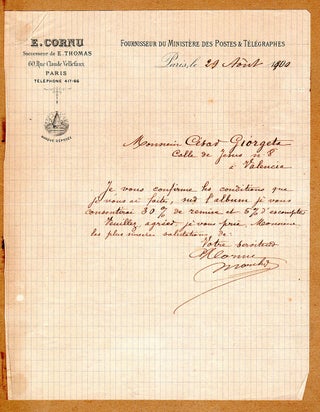 E. CORNU
Successeur de E. THOMAS
60 Rue Claude Vellefaux
PARIS
TÉLÉPHONE 417-66
MARQUE DÉPOSÉE
FOURNISSEUR DU MINISTÈRE DES POSTES & TÉLÉGRAPHES
Paris, le 29 Août 1900
Monsieur César Giorgeta
Calle de Jesus n 8
à Valencia
Je vous confirme les conditions que
je vous ai faite, sur l'album je vous
consentirai 30 % de remise et 5 % d'escompte
Veuillez, agréer je vous prie, Monsieur
les plus sincères salutations de
Votre serviteur